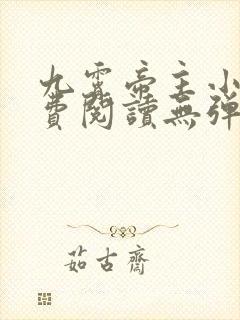 九霄帝主小
費閱讀無彈
茹古齋